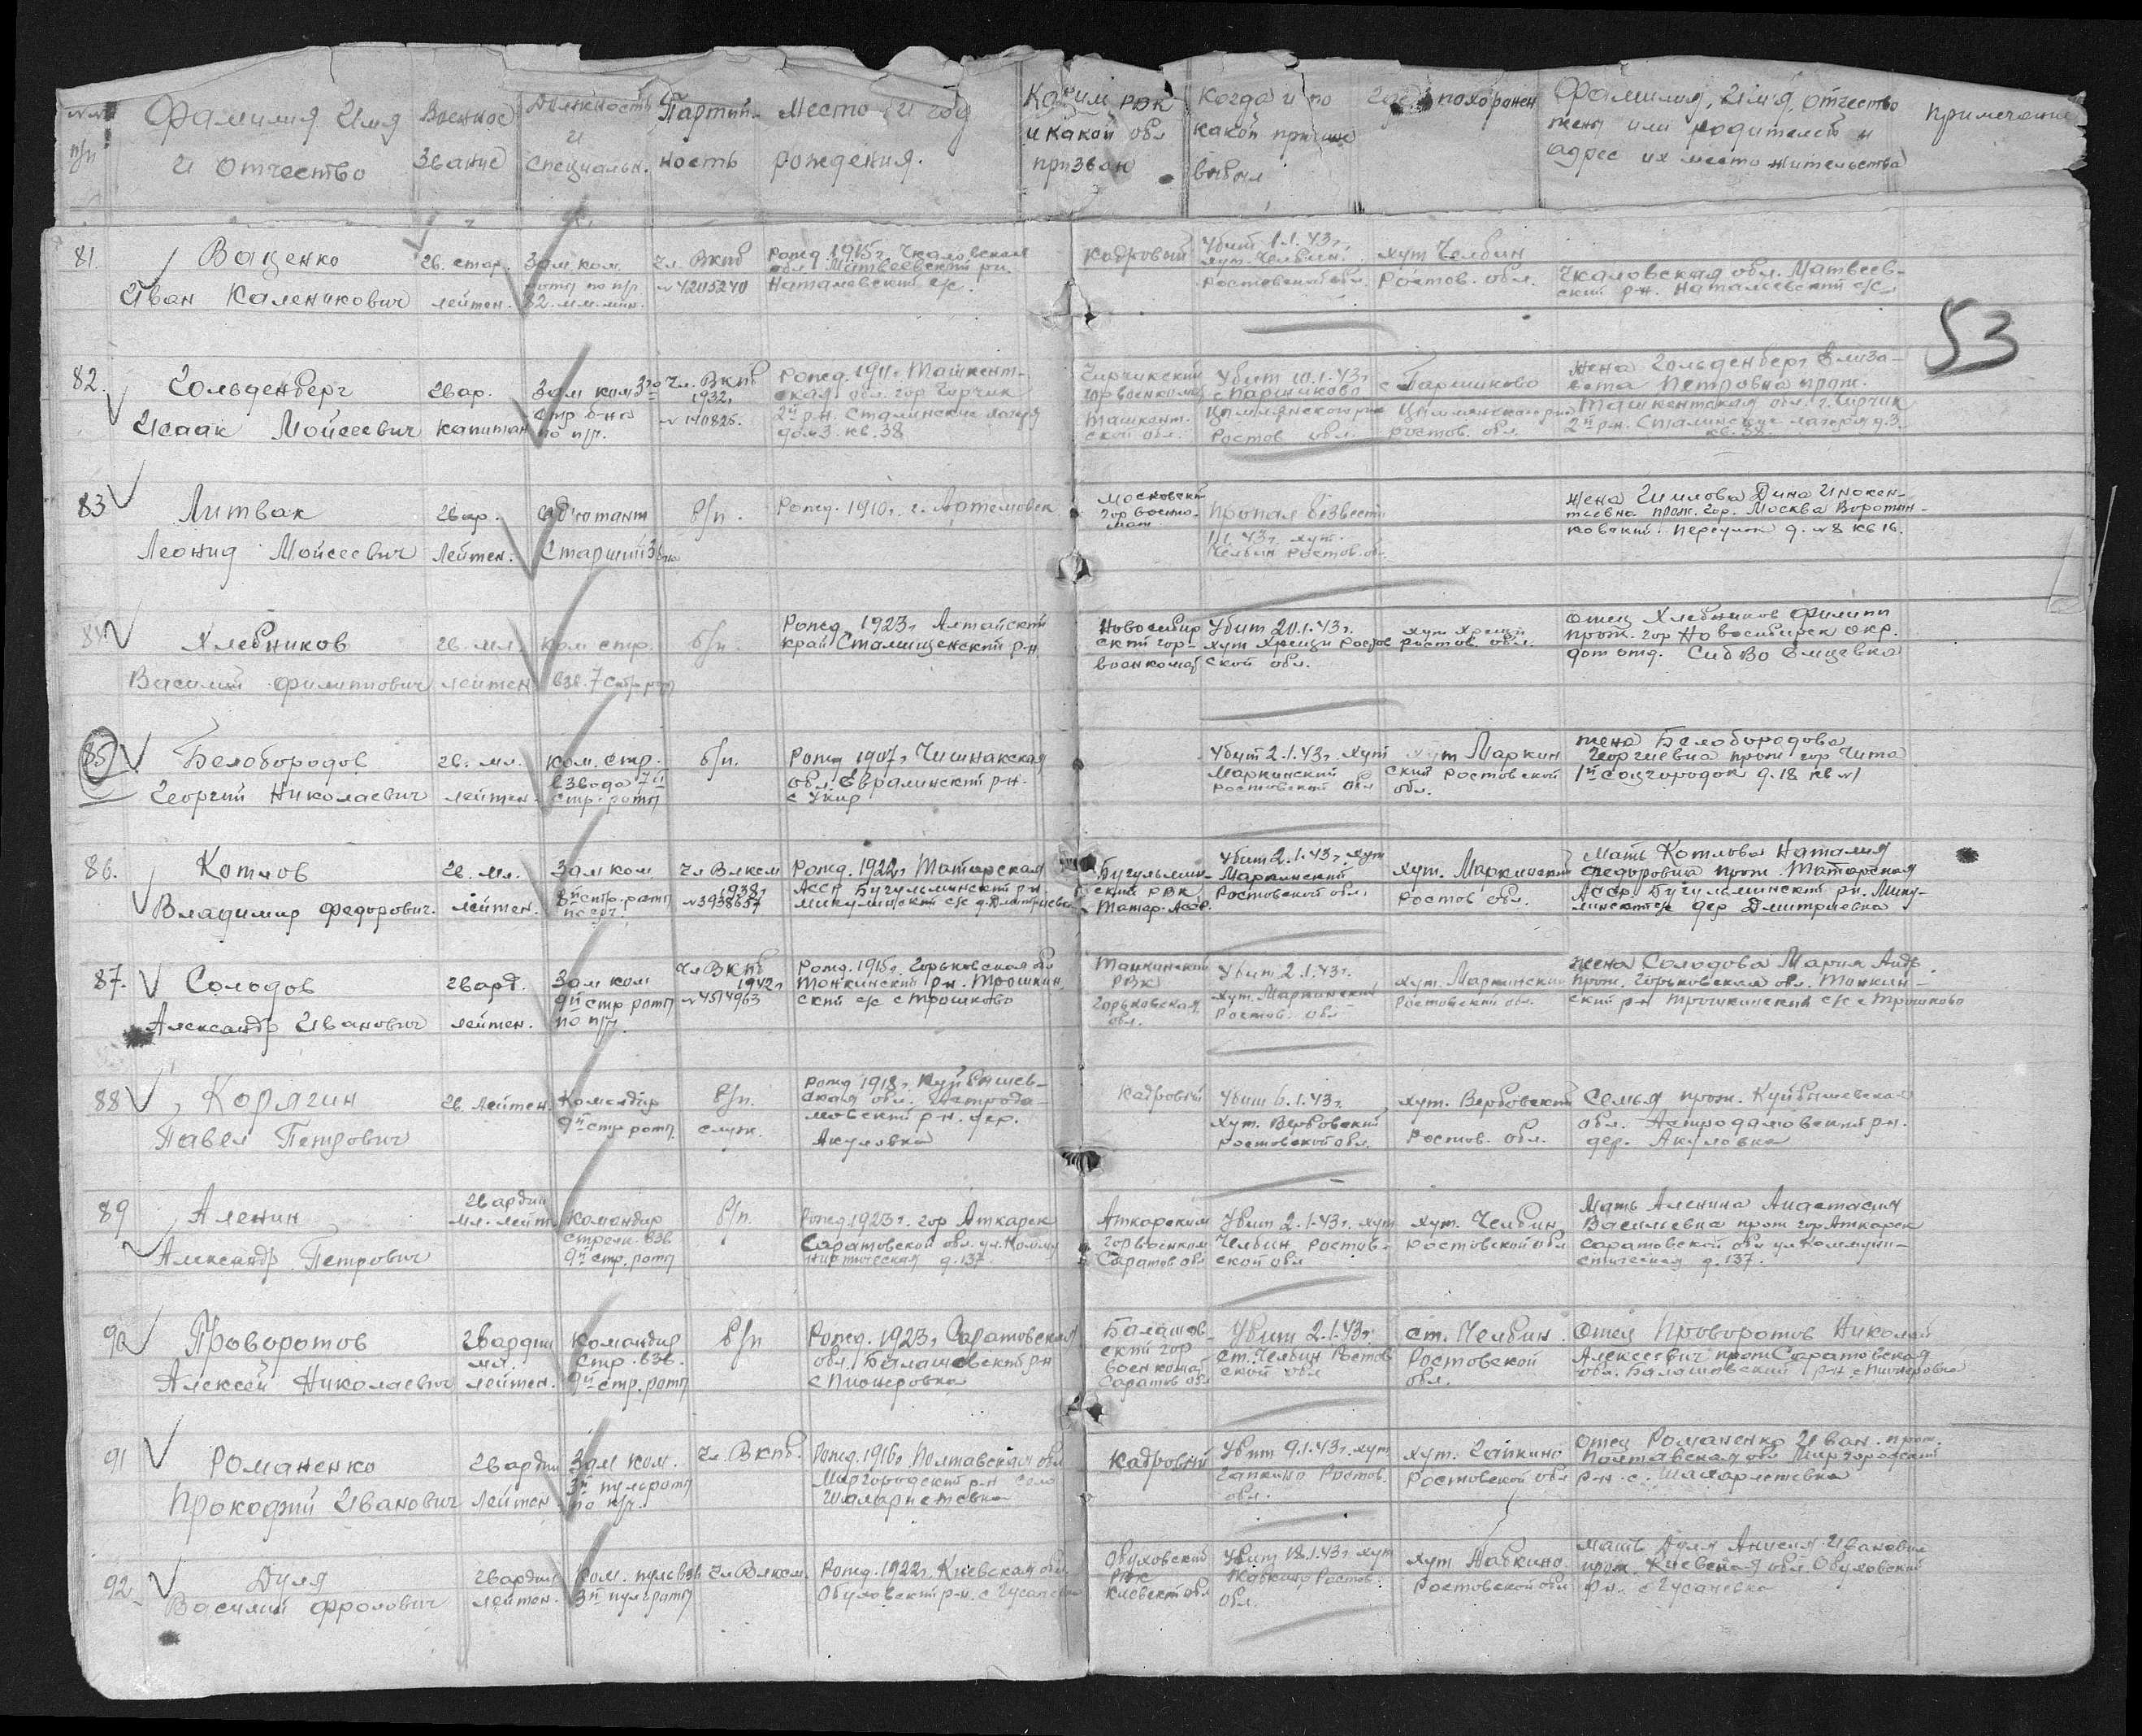 №№ п/п
Фамилия Имя
и отчество
Военное
звание
Должность
и
специальн.
Партий-
ность
Место и год
рождения.
Каким РВК
и какой обл
призван
Когда и по
какой причине
выбыл
Где похоронен
Фамилия, имя, отчество
жены или родителей и
адрес их место жительства
Примечание
53
81.
Ваценко
Иван Каленикович
гв. стар.
лейтен.
Зам ком.
роты по п/р.
82. мм. мин.
Чл. ВКПб
№ 4205240
Рожд 1915г. Чкаловская
обл. Матвеевский рн.
Наталевский с/с.
Кадровый
Убит 1.1.43г.
хут. Челбин.
Ростовской обл.
хут Челбин
Ростов. обл.
Чкаловская обл. Матвеев-
ский р-н. Наталевский с/с
82.
Гольденберг
Исаак Мойсеевич
гвар.
капитан
Зам ком 3го
стр б-на
по п/р.
Чл. ВКПб
1932г
№ 140826.
Рожд. 1911г. Ташкент-
ская обл. гор Чирчик
2й р.н. Сталинские лагеря
дом 3. кв. 38
Чирчикский
горвоенкомат
Ташкент.
ской обл.
Убит 10.1.43г
с Паршиково
Цимлянского рна
Ростов обл.
с Паршиково
Цимлянского рна
Ростов. обл.
жена Гольденберг Елиза-
вета Петровна прож.
Ташкентская обл. г. Чирчик
2й р-н. Сталинские лагеря д. 3.
кв. 38.
83
Литвак
Леонид Мойсеевич
гвар.
Лейтен.
адъютант
Старший 3 б-на
б/п.
Рожд. 1910г. г. Артемовск
Московский
гор военко-
мат
Пропал безвести
1.1.43г. хут.
Челбин Ростов. об.
жена Дина Инокен-
тьевна прож. гор. Москва Воротни-
ковский переулок д. №8 кв 16.
84
Хлебников
Василий Филиппович
гв. мл.
лейтен
ком стр.
взв. 7 стр роты
б/п.
Рожд 1923г Алтайский
край р-н
Новосибир
ский гор-
военкомат
Убит 20.1.43г.
хут Хрещи Ростов
ской обл.
хут Хрещи
Ростов. обл.
отец Хлебников Филипп
прож. гор Новосибирск окр.
СибВо
85
Белобородов
Георгий Николаевич
гв. мл.
лейтен.
ком. стр.
взвода 7й
стр. роты
б/п.
Рожд 1907г
обл. р-н.
с Укир
Убит 2.1.43г. хут
Маркинский
Ростовский обл
хут Маркин
ский Ростовской
обл.
жена Белобородова
Георгиевна прож гор Чита
1й соцгородок д. 18 кв №1
86.
Котлов
Владимир Федорович.
гв. мл.
лейтен.
Зам ком
8й стр. роты
по стр.
Чл Влксм
1938г
№ 3938657
Рожд. 1922г. Татарская
АССР Бугульминский р-н.
Микулинский с/с д. Дмитриевка
Бугульмин-
ский РВК
Татар. Асср.
Убит 2.1.43г. хут
Маркинский
Ростовской обл.
хут. Маркинский
Ростов обл.
Мать Котлова Наталия
Федоровна прож. Татарская
Асср Бугульминский рн. Мику-
линский с/с дер Дмитриевка
87.
Солодов
Александр Иванович
гвард.
лейтен.
Зам ком
9й стр роты
по п/р.
Чл ВКПб
1942г
№ 4514963
Рожд. 1915г. Горьковская обл
Тонкинский р-н. Трошкин
ский с/с с Трошково
Тонкинский
РВК
Горьковская
обл.
Убит 2.1.43г.
хут. Маркинский
Ростов. обл
хут. Маркинский
Ростовский обл.
жена Солодова Мария Андр.
прож. Горьковская обл. Тонкин-
ский р-н Трошкинский с/с с Трошково
88
Корягин
Павел Петрович
гв. лейтен.
Командир
9й стр роты
б/п.
служ.
Рожд 1918г. Куйбышев-
ская обл.
р-н. дер.
Акуловка
Кадровый
Убит 6.1.43г.
хут. Вербовский
Ростовской обл.
хут. Вербовский
Ростов. обл.
Семья прож. Куйбышевская
обл. рн.
дер. Акуловка
89
Аленин
Александр Петрович
гвардии
мл. лейт.
командир
стрелк. взв.
9й стр. роты
б/п.
Рожд 1923г. гор Аткарск
Саратовской обл. ул. Комму
нистическая д. 137.
Аткарским
горвоенком
Саратов обл
Убит 2.1.43г. хут
Челбин Ростов-
ской обл
хут. Челбин
Ростовской обл
Мать Аленина Анастасия
Васильевна прож гор Аткарск
Саратовской обл ул Коммуни-
стическая д. 137.
90
Проворотов
Алексей Николаевич
гвардии
мл.
лейтен.
командир
стр. взв.
9й стр. роты
б/п
Рожд. 1923г Саратовская
обл. Балашовский рн
с Пионеровка
Балашов-
ский гор
военкомат
Саратов обл
Убит 2.1.43г.
ст. Челбин Ростов
ской обл
ст. Челбин.
Ростовской
обл.
Отец Проворотов Николай
Алексеевич прож Саратовская
обл. Балашовский р-н с Пионеровка
91
Романенко
Прокофий Иванович
гвардии
лейтен.
Зам ком.
3й пульроты
по п/р.
Чл. ВКПб.
Рожд. 1916г. Полтавская обл
Миргородский р-н село
Кадровый
Убит 9.1.43г. хут
Гапкино Ростов.
обл.
хут. Гапкино
Ростовской обл
Отец Романенко Иван. прож.
Полтавская обл Миргородский
р-н. с.
92
Дуля
Василий Фролович
гвардии
лейтен.
ком. пульвзв
3й пульроты
Чл Влксм.
Рожд. 1922г. Киевская обл
Обуховский р-н. с Гусачевка
Обуховский
РВК
Киевский обл
Убит 18.1.43г хут
Ростов.
обл.
хут
Ростовской обл
мать Дуля Ивановна
прож. Киевская обл. Обуховский
р-н. с Гусачевка